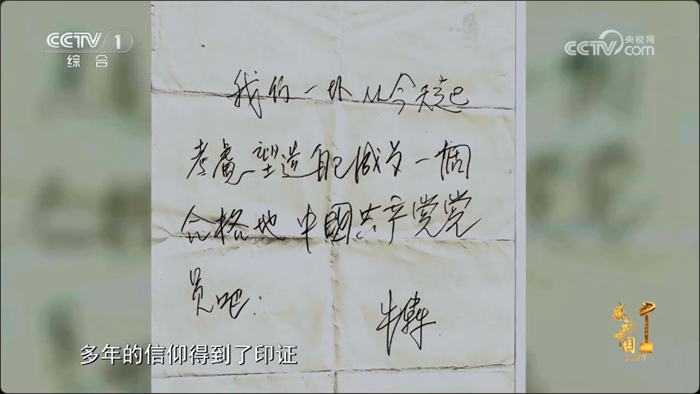 CCTV 1
综合
央视网
CCTV.com
我们一 从今天起
考慮塑造自己成为一個
合格地中國共产党党
员吧.
牛犇
感动中国
多年的信仰得到了印证